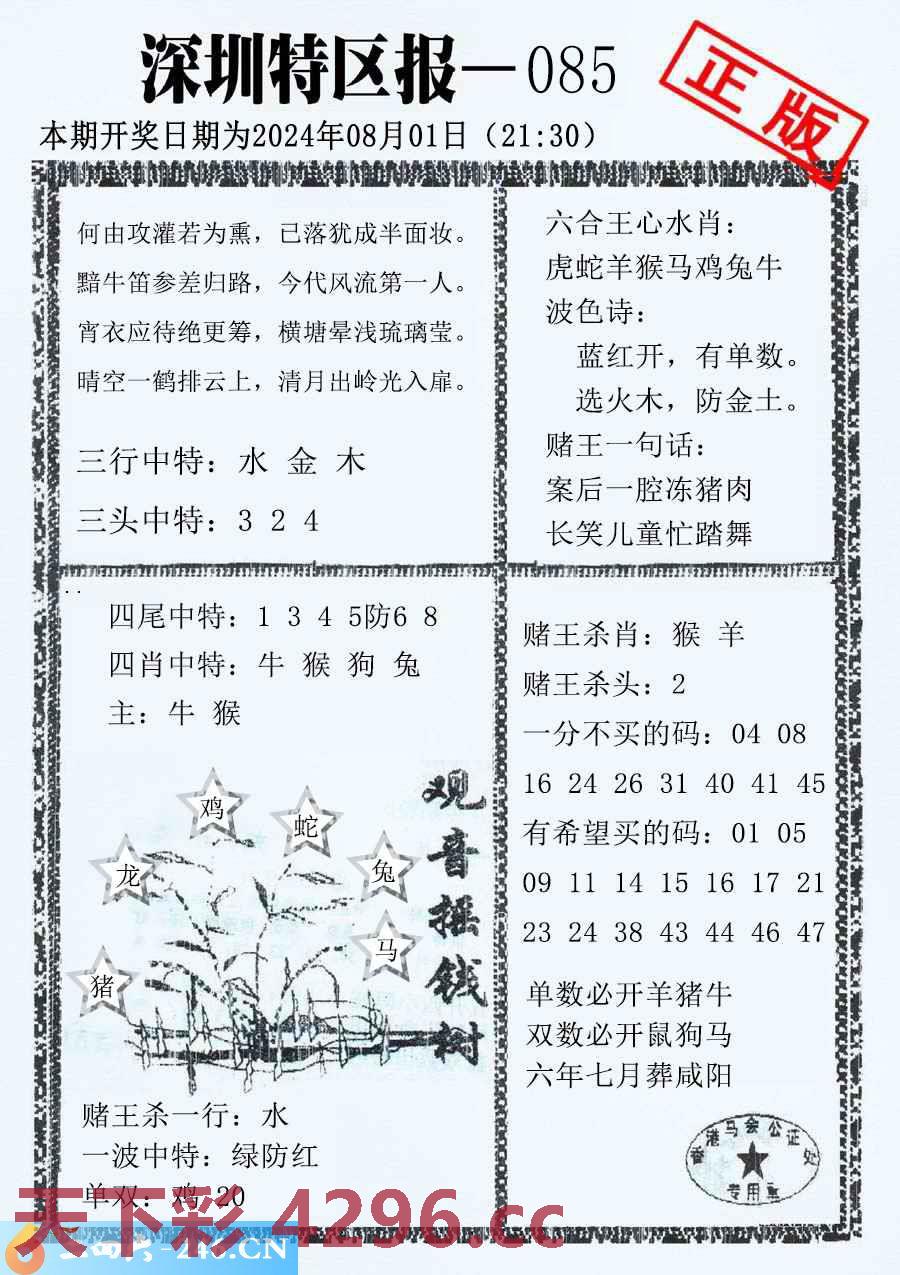 深圳特区报—085
正版
本期开奖日期为2024年08月01日（21:30）
何由攻灌若为熏，已落犹成半面妆。
黯牛笛参差归路，今代风流第一人。
宵衣应待绝更筹，横塘晕浅琉璃莹。
晴空一鹤排云上，清月出岭光入扉。
三行中特：水 金 木
三头中特：3 2 4
六合王心水肖：
虎蛇羊猴马鸡兔牛
波色诗：
蓝红开，有单数。
选火木，防金土。
赌王一句话：
案后一腔冻猪肉
长笑儿童忙踏舞
四尾中特：1 3 4 5防6 8
四肖中特：牛 猴 狗 兔
主：牛 猴
观音摇钱树
鸡
蛇
龙
兔
马
猪
赌王杀一行：水
一波中特：绿防红
单双：鸡 20
赌王杀肖：猴 羊
赌王杀头：2
一分不买的码：04 08
16 24 26 31 40 41 45
有希望买的码：01 05
09 11 14 15 16 17 21
23 24 38 43 44 46 47
单数必开羊猪牛
双数必开鼠狗马
六年七月葬咸阳
香港马会公证处
专用章
天下彩 4296.cc
246.CN